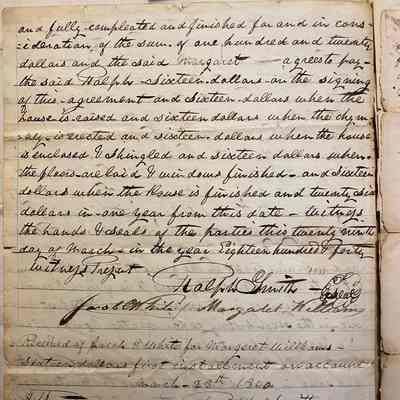 and fully compleated and finished for and in cons-
ideration of the sum of one hundred and twenty
dollars and the said Margaret — agrees to pay-
the said Ralph - Sixteen - dollars - on the signing
of this - agreement and Sixteen - dollars when the
house is raised and sixteen dollars when the chym-
is erected and sixteen - dollars when the house
is enclosed & Shingled and sixteen - dollars when -
the floors are laid & windows finished - and Sixteen
dollars when the House is finished and twenty
dollars in - one year from this date - Witness
the hands & seals of the parties this twenty ninth
day of March - in the year Eighteen hundred & forty
Witness Present
Ralph
Jacob White Margaret Williams Seal
Received of Jacob White for Margaret Williams -
Sixteen dollars first installment on account
march -